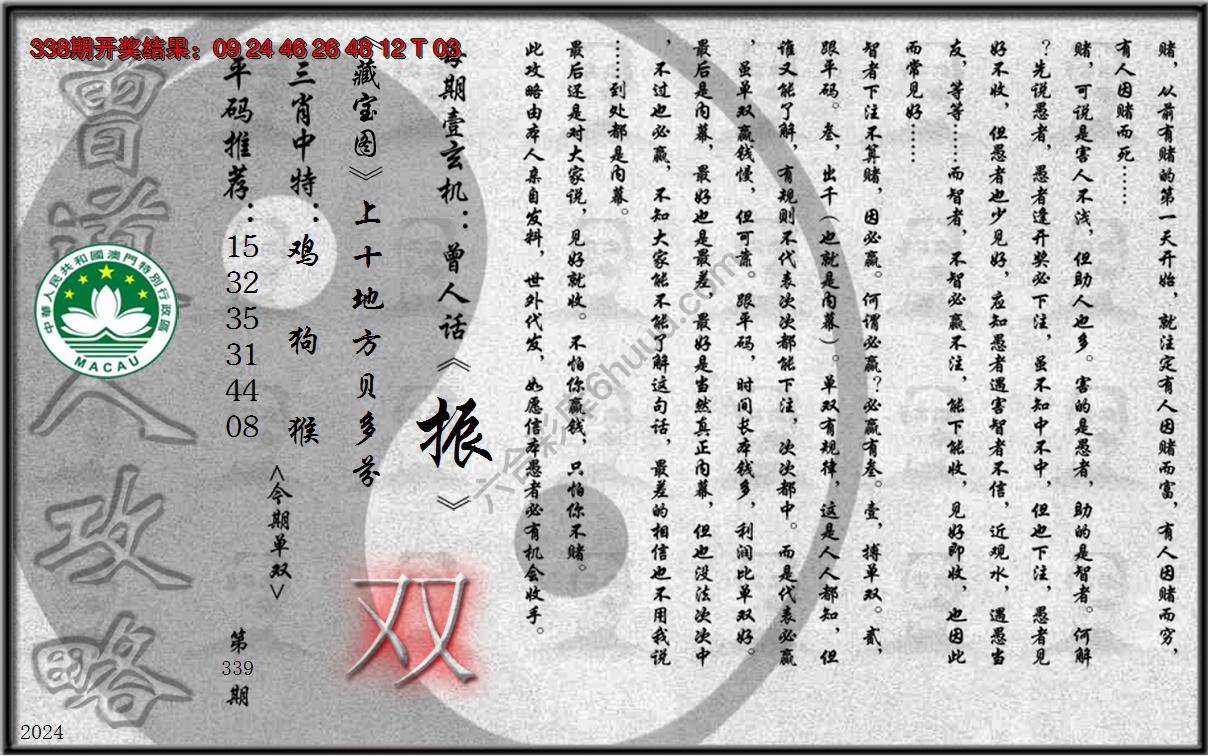 338期开奖结果：09 24 46 26 48 12 T 03
赌，从前有赌的第一天开始，就注定有人因赌而富，有人因赌而穷，
有人因赌而死……
赌，可说是害人不浅，但助人也多。害的是愚者，助的是智者。何解
？先说愚者，愚者逢开奖必下注，虽不知中不中，但也下注，愚者见
好不收，但愚者也少见好，应知愚者遇害智者不信，近观水，遇愚当
友，等等……而智者，不智必赢不注，能下能收，见好即收，也因此
而常见好……
智者下注不算赌，因必赢。何谓必赢？必赢有叁。壹，搏单双。贰，
跟平码。叁，出千（也就是内幕）。单双有规律，这是人人都知，但
谁又能了解，有规则不代表次次都能下注，次次都中。而是代表必赢
，虽单双赢钱慢，但可靠。跟平码，时间长本钱多，利润比单双好。
最后是内幕，最好也是最差，最好是当然真正内幕，但也没法次次中
，不过也必赢，不知大家能不能了解这句话，最差的相信也不用我说
……到处都是内幕。
最后还是对大家说，见好就收。不怕你赢钱，只怕你不赌。
此攻略由本人亲自发料，世外代发，如愿信本愚者必有机会收手。
每期壹玄机：曾人话《振》
《藏宝图》上十地方贝多芬
双
三肖中特：鸡 狗 猴
<今期单双>
平码推荐：
15
32
35
31
44
08
第
339
期
曾道人攻略
中華人民共和國澳門特別行政區
MACAU
2024